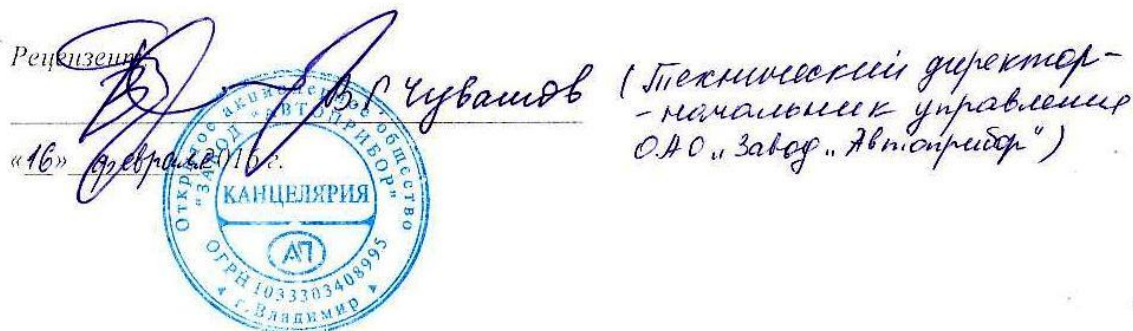 Рецензент
В.Г. Чувашов (Технический директор-
-начальник управления
ОАО „Завод „Автоприбор")
«16» февраля 2016 г.
Открытое акционерное общество
"ЗАВОД "АВТОПРИБОР"
КАНЦЕЛЯРИЯ
АП
ОГРН 1033303408995
г. Владимир